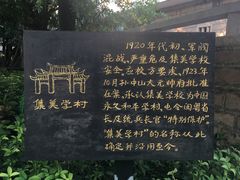 1920年代初，军阀
混战，严重危及集美学校
安全，应校方要求，1923年
10月孙中山大元帅府批准
在案，承认集美学校为中国
永久和平学校，电令闽粤省
长及统兵长官“特别保护”，
“集美学村”的名称从此
确定并沿用至今。
集美学村